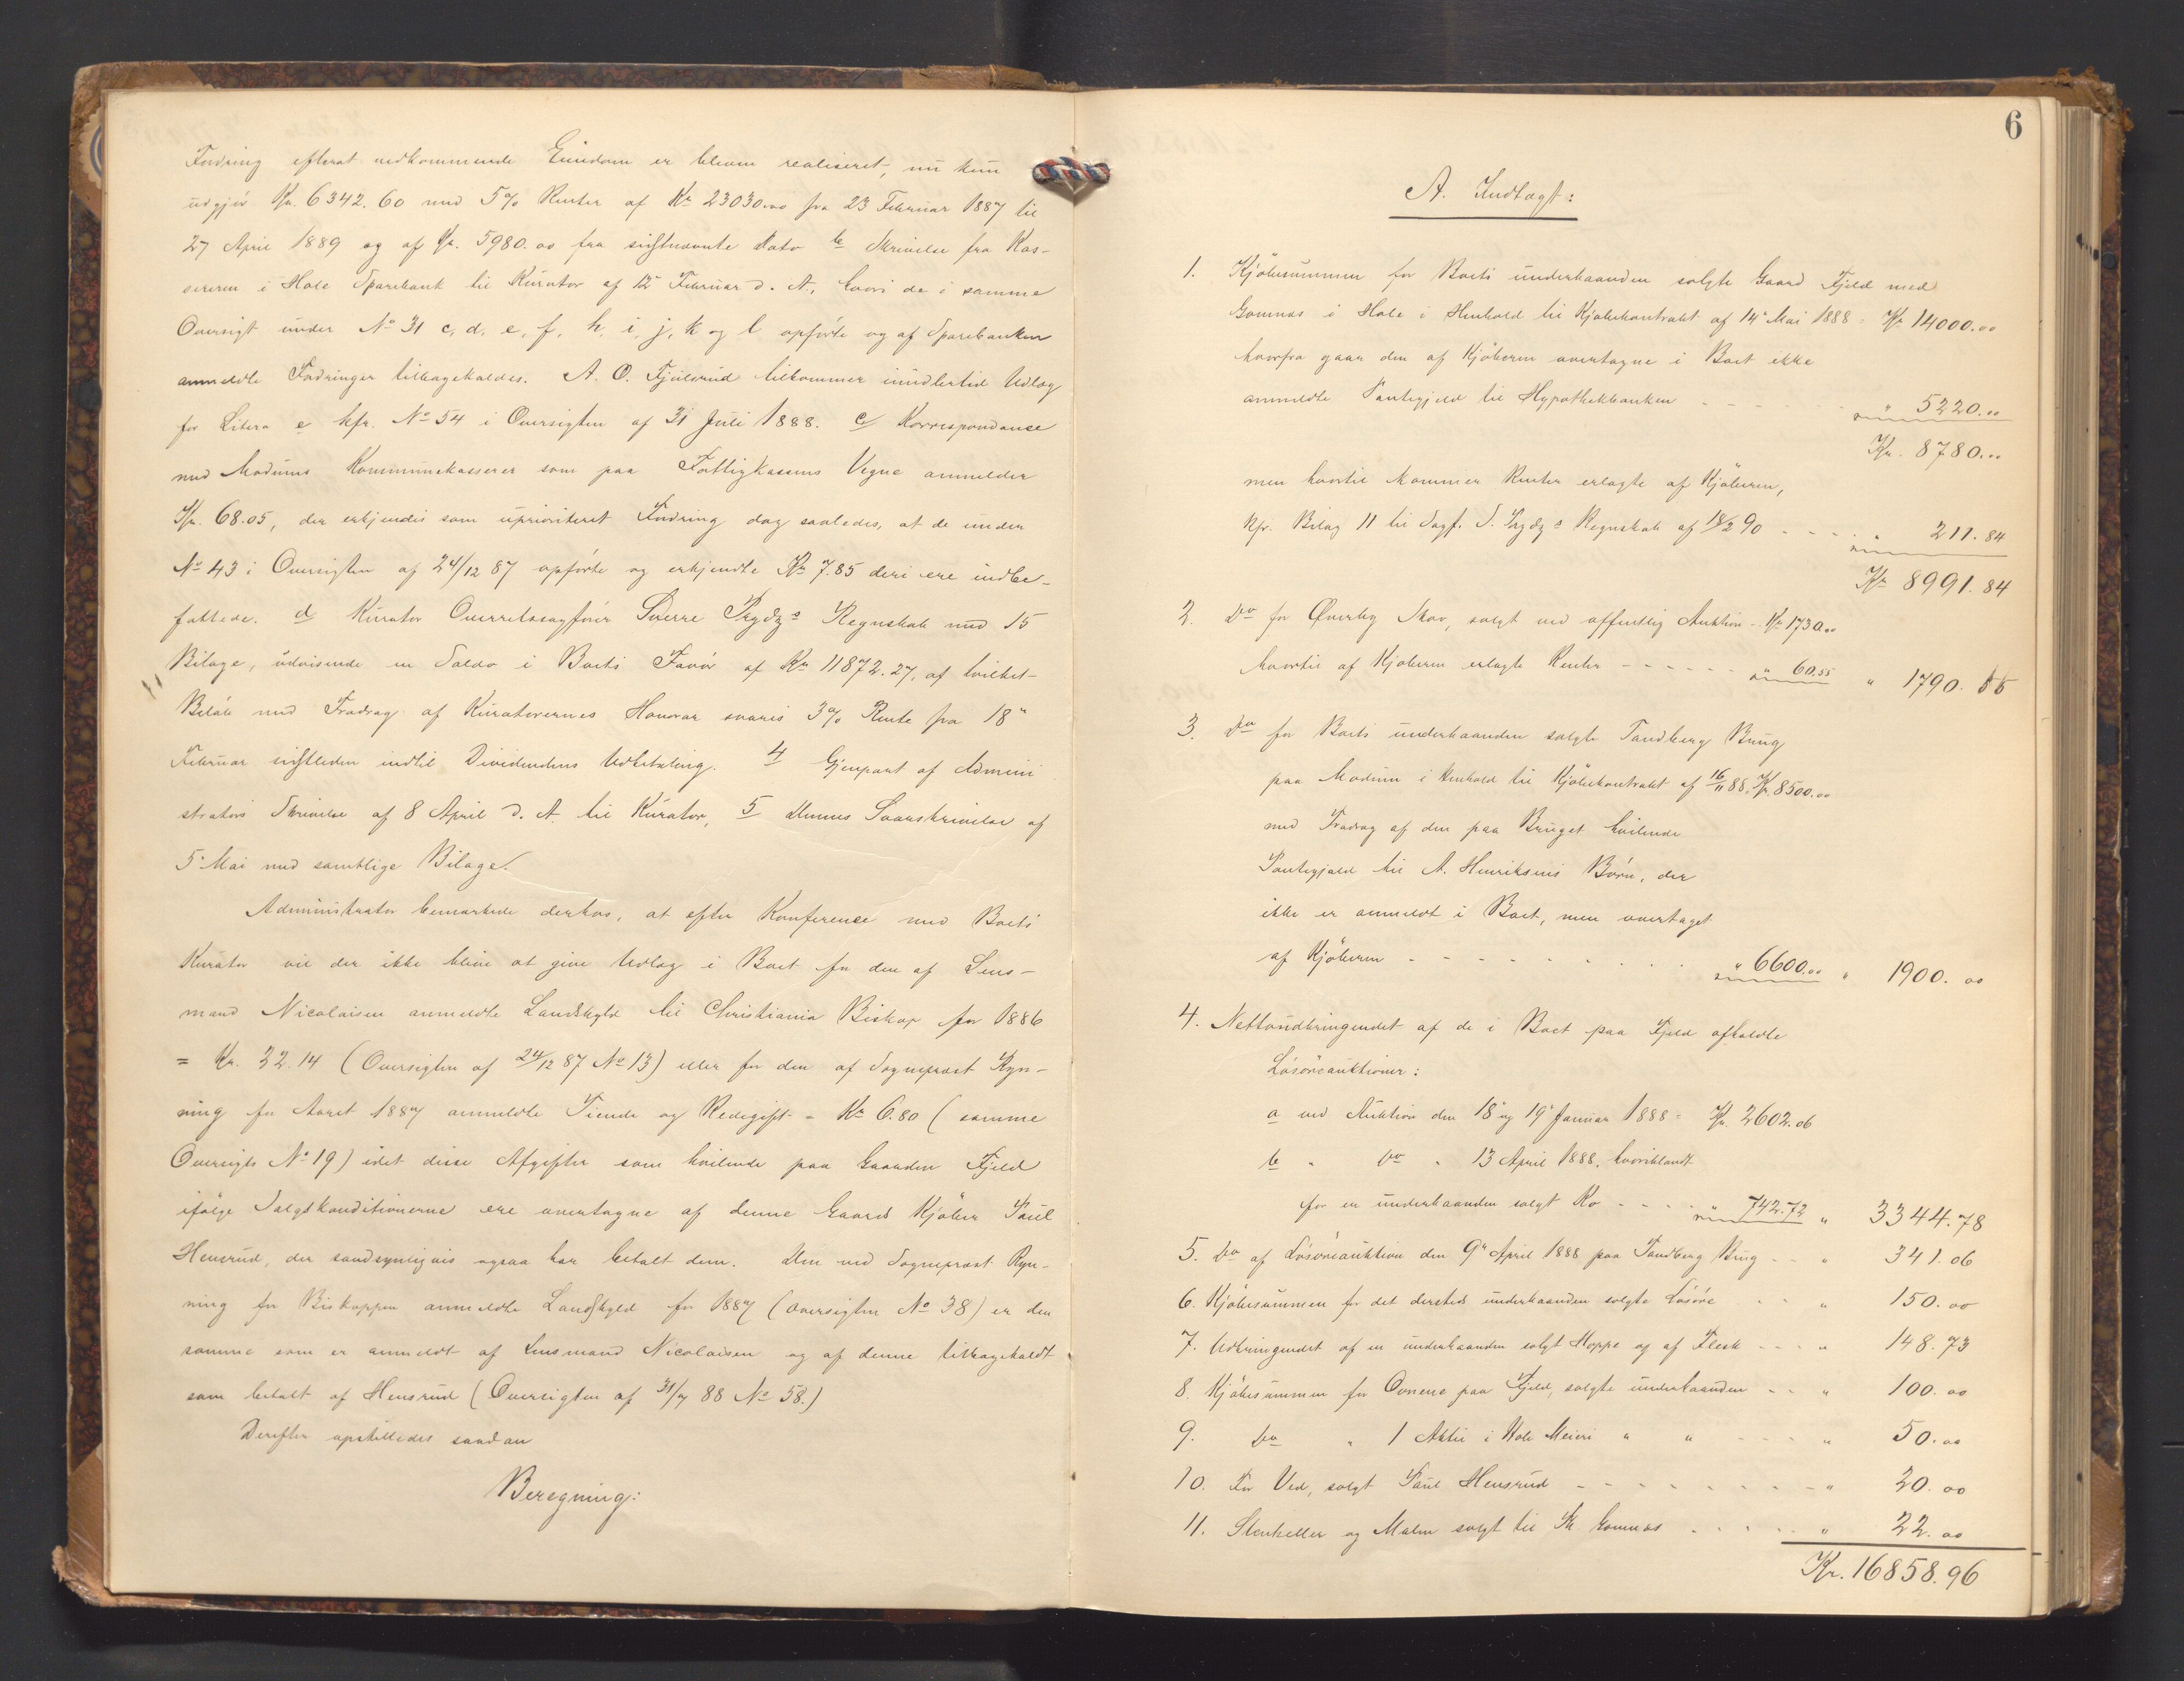 Fordring efterat vedkommende Eiendom er bleven realiseret, nu kun
udgjør Kr. 6342.60 med 5% Renter af Kr 23030.00 fra 23 Februar 1887 til
27 April 1889 og af Kr. 5980.00 fra sidstnævnte Dato b Skrivelse fra Kas-
sereren i Hole Sparebank til Kurator af 12 Februar d. A., hvori de i samme
Oversigt under No 31 c, d, e, f, h, i, j, k og l opførte og af Sparebanken
anmeldte Fordringer tilbagekaldes. A. O. Fjeldsrud tilkommer imidlertid Udlæg
for Litera e kfr. No 54 i Oversigten af 31 Juli 1888. c/ Korrespondanse
med Modums Kommunekasserer som paa Fattigkassens Vegne anmelder
Kr. 68.05, der erkjendes som uprioriteret Fordring dog saaledes, at de under
No 43 i Oversigten af 24/12 87 opførte og erkjendte Kr 7.85 deri ere indbe-
fattede. d Kurator Overretssagfører Sverre Prydz's Regnskab med 15
Bilage, udvisende en Saldo i Boets Favør af Kr 11872.27, af hvilket
Beløb med Fradrag af Kuratorernes Honorar svares 3% Rente fra 18"
Februar sidstleden indtil Dividendens Udbetaling. 4 Gjenpart af Admini
strators Skrivelse af 8 April d. A. til Kurator, 5 dennes Svarskrivelse af
5' Mai med samtlige Bilage.
Administrator bemærkede derhos, at efter Konference med Boets
Kurator vil der ikke blive at give Udlæg i Boet for den af Lens-
mand Nicolaisen anmeldte Landskyld til Christiania Biskop for 1886
= Kr. 32.14 (Oversigten af 24/12 87 No 13) eller for den af Sognepræst Ryn-
ning for Aaret 1887 anmeldte Tiende og Redegift = Kr 6.80 (samme
Oversigts No 19) idet disse Afgifter som hvilende paa Gaarden Fjeld
ifølge Salgskonditionerne ere overtagne af denne Gaards Kjøber Paul
Hensrud, der sandsynligvis ogsaa har betalt dem. Den ved Sognepræst Ryn-
ning for Biskoppen anmeldte Landskyld for 1887 (Oversigten No 38) er den
samme som er anmeldt af Lensmand Nicolaisen og af denne tilbagekaldt
som betalt af Hensrud (Oversigten af 31/7 88 No 58.)
Derefter opstilledes saadan
Beregning:
6
A. Indtægt:
1. Kjøbesummen for Boets underhaanden solgte Gaard Fjeld med
Gomnæs i Hole i Henhold til Kjøbekontrakt af 14' Mai 1888 = Kr 14000.00
hvorfra gaar den af Kjøberen overtagne i Boet ikke
anmeldte Pantegjeld til Hypothekbanken - - - " 5220.00
Kr. 8780.00
men hvortil kommer Renter erlagte af Kjøberen,
kfr. Bilag 11 til Sagf. S. Prydz's Regnskab af 18/2 90 - - - " 211.84
Kr 8991.84
2. Do for Øverby Skov, solgt ved offentlig Auktion - Kr 1730.00
hvortil af Kjøberen erlagte Renter - - - - - " 60.55 " 1790.55
3. Do for Boets underhaanden solgte Tandberg Brug
paa Modum i Henhold til Kjøbekontrakt af 16/11 88. Kr. 8500.00
med Fradrag af den paa Bruget hvilende
Pantegjæld til A. Henriksens Børn, der
ikke er anmeldt i Boet, men overtaget
af Kjøberen - - - - - - - - " 6600.00 " 1900.00
4. Nettoudbringendet af de i Boet paa Fjeld afholdte
Løsøreauktioner:
a ved Auktion den 18' og 19' Januar 1888 = Kr. 2602.06
b " Do " 13 April 1888, hvoriblandt
for en underhaanden solgt Ko - - - " 742.72 " 3344.78
5. Do af Løsøreauktion den 9" April 1888 paa Tandberg Brug - - " 341.06
6. Kjøbesummen for det dersteds underhaanden solgte Løsøre - - " 150.00
7. Udbringendet af en underhaanden solgt Hoppe og af Flesk - - - " 148.73
8. Kjøbesummen for Ovnene paa Fjeld, solgte underhaanden - - " 100.00
9. Do " 1 Aktie i Hole Meieri " " - - - " 50.00
10. For Ved, solgt Paul Hensrud - - - - - - - - - " 20.00
11. Stenheller og Malm solgt til Gomnæs - - - - - " 22.00
Kr. 16858.96